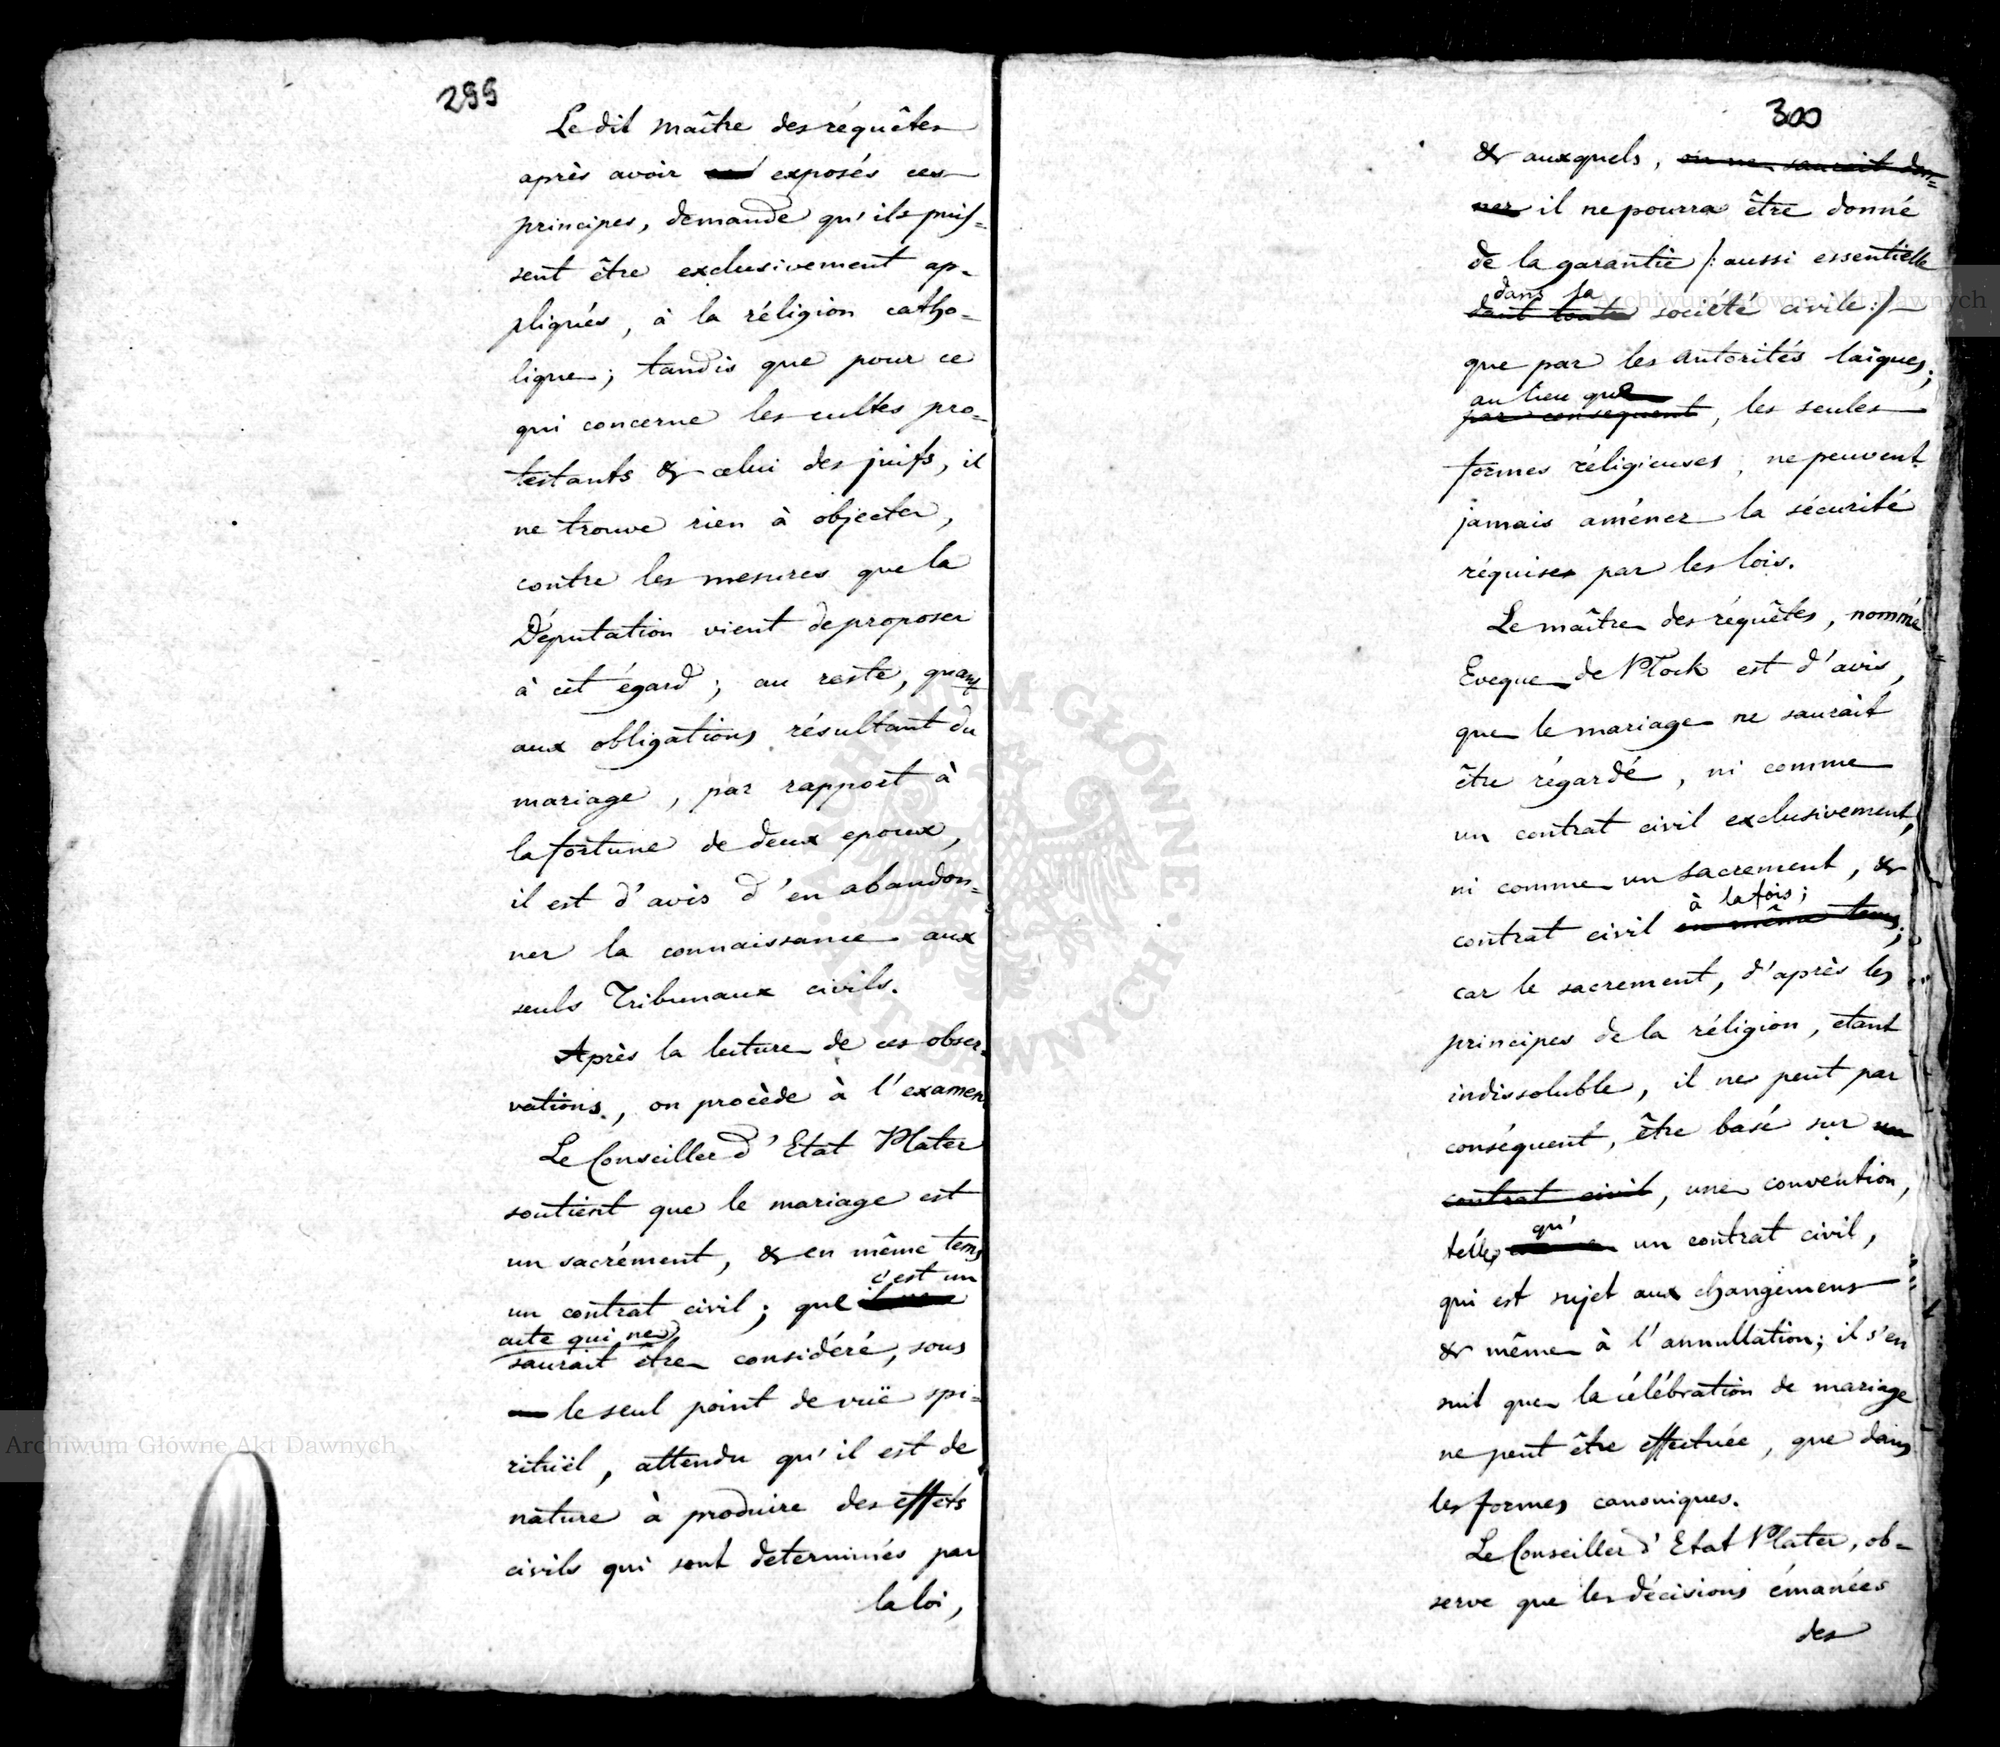 299
Le dit maître des réquêtes
après avoir exposés ces
principes, demande qu'ils puis=
sent être exclusivement ap=
pliqués, à la réligion catho=
lique; tandis que pour ce
qui concerne les cultes pro=
testants & celui des juifs, il
ne trouve rien à objecter,
contre les mesures que la
Députation vient de proposer
à cet égard; au reste, quant
aux obligations résultant du
mariage, par rapport à
la fortune de deux epoux,
il est d'avis d'en abandon=
ner la connaissance aux
seuls Tribunaux civils.
Après la lecture de ces obser=
vations, on procède à l'examen.
Le Conseiller d'Etat Plater
soutient que le mariage est
un sacrément, & en même tems
c'est un
un contrat civil; que
acte qui ne
saurait être considéré, sous
le seul point de vuë spi=
rituël, attendu qu'il est de
nature à produire des effets
civils qui sont determinés par
la loi,
300
& auxquels, on ne saurait don=
ner il ne pourra être donné
de la garantie /: aussi essentielle
dans la
dans toute société civile :/
que par les autorités laïques;
au lieu que
par consequent, les seules
formes réligieuses, ne peuvent
jamais améner la sécurité
réquises par les lois.
Le maître des réquêtes, nommé
Eveque de Plock est d'avis,
que le mariage ne saurait
être régardé, ni comme
un contrat civil exclusivement,
ni comme un sacrement, &
à la fois;
contrat civil en même tems;
car le sacrement, d'après les
principes de la réligion, etant
indissoluble, il ne peut par
conséquent, être basé sur un
contrat civil, une convention,
qu'
telle un contrat civil,
qui est sujet aux changemens
& même à l'annullation; il s'en
suit que la célébration de mariage
ne peut être effectuée, que dans
les formes canoniques.
Le Conseiller d'Etat Plater, ob=
serve que les décisions émanées
des
Archiwum Główne Akt Dawnych
Archiwum Główne Akt Dawnych
ARCHIWUM GŁÓWNE AKT DAWNYCH